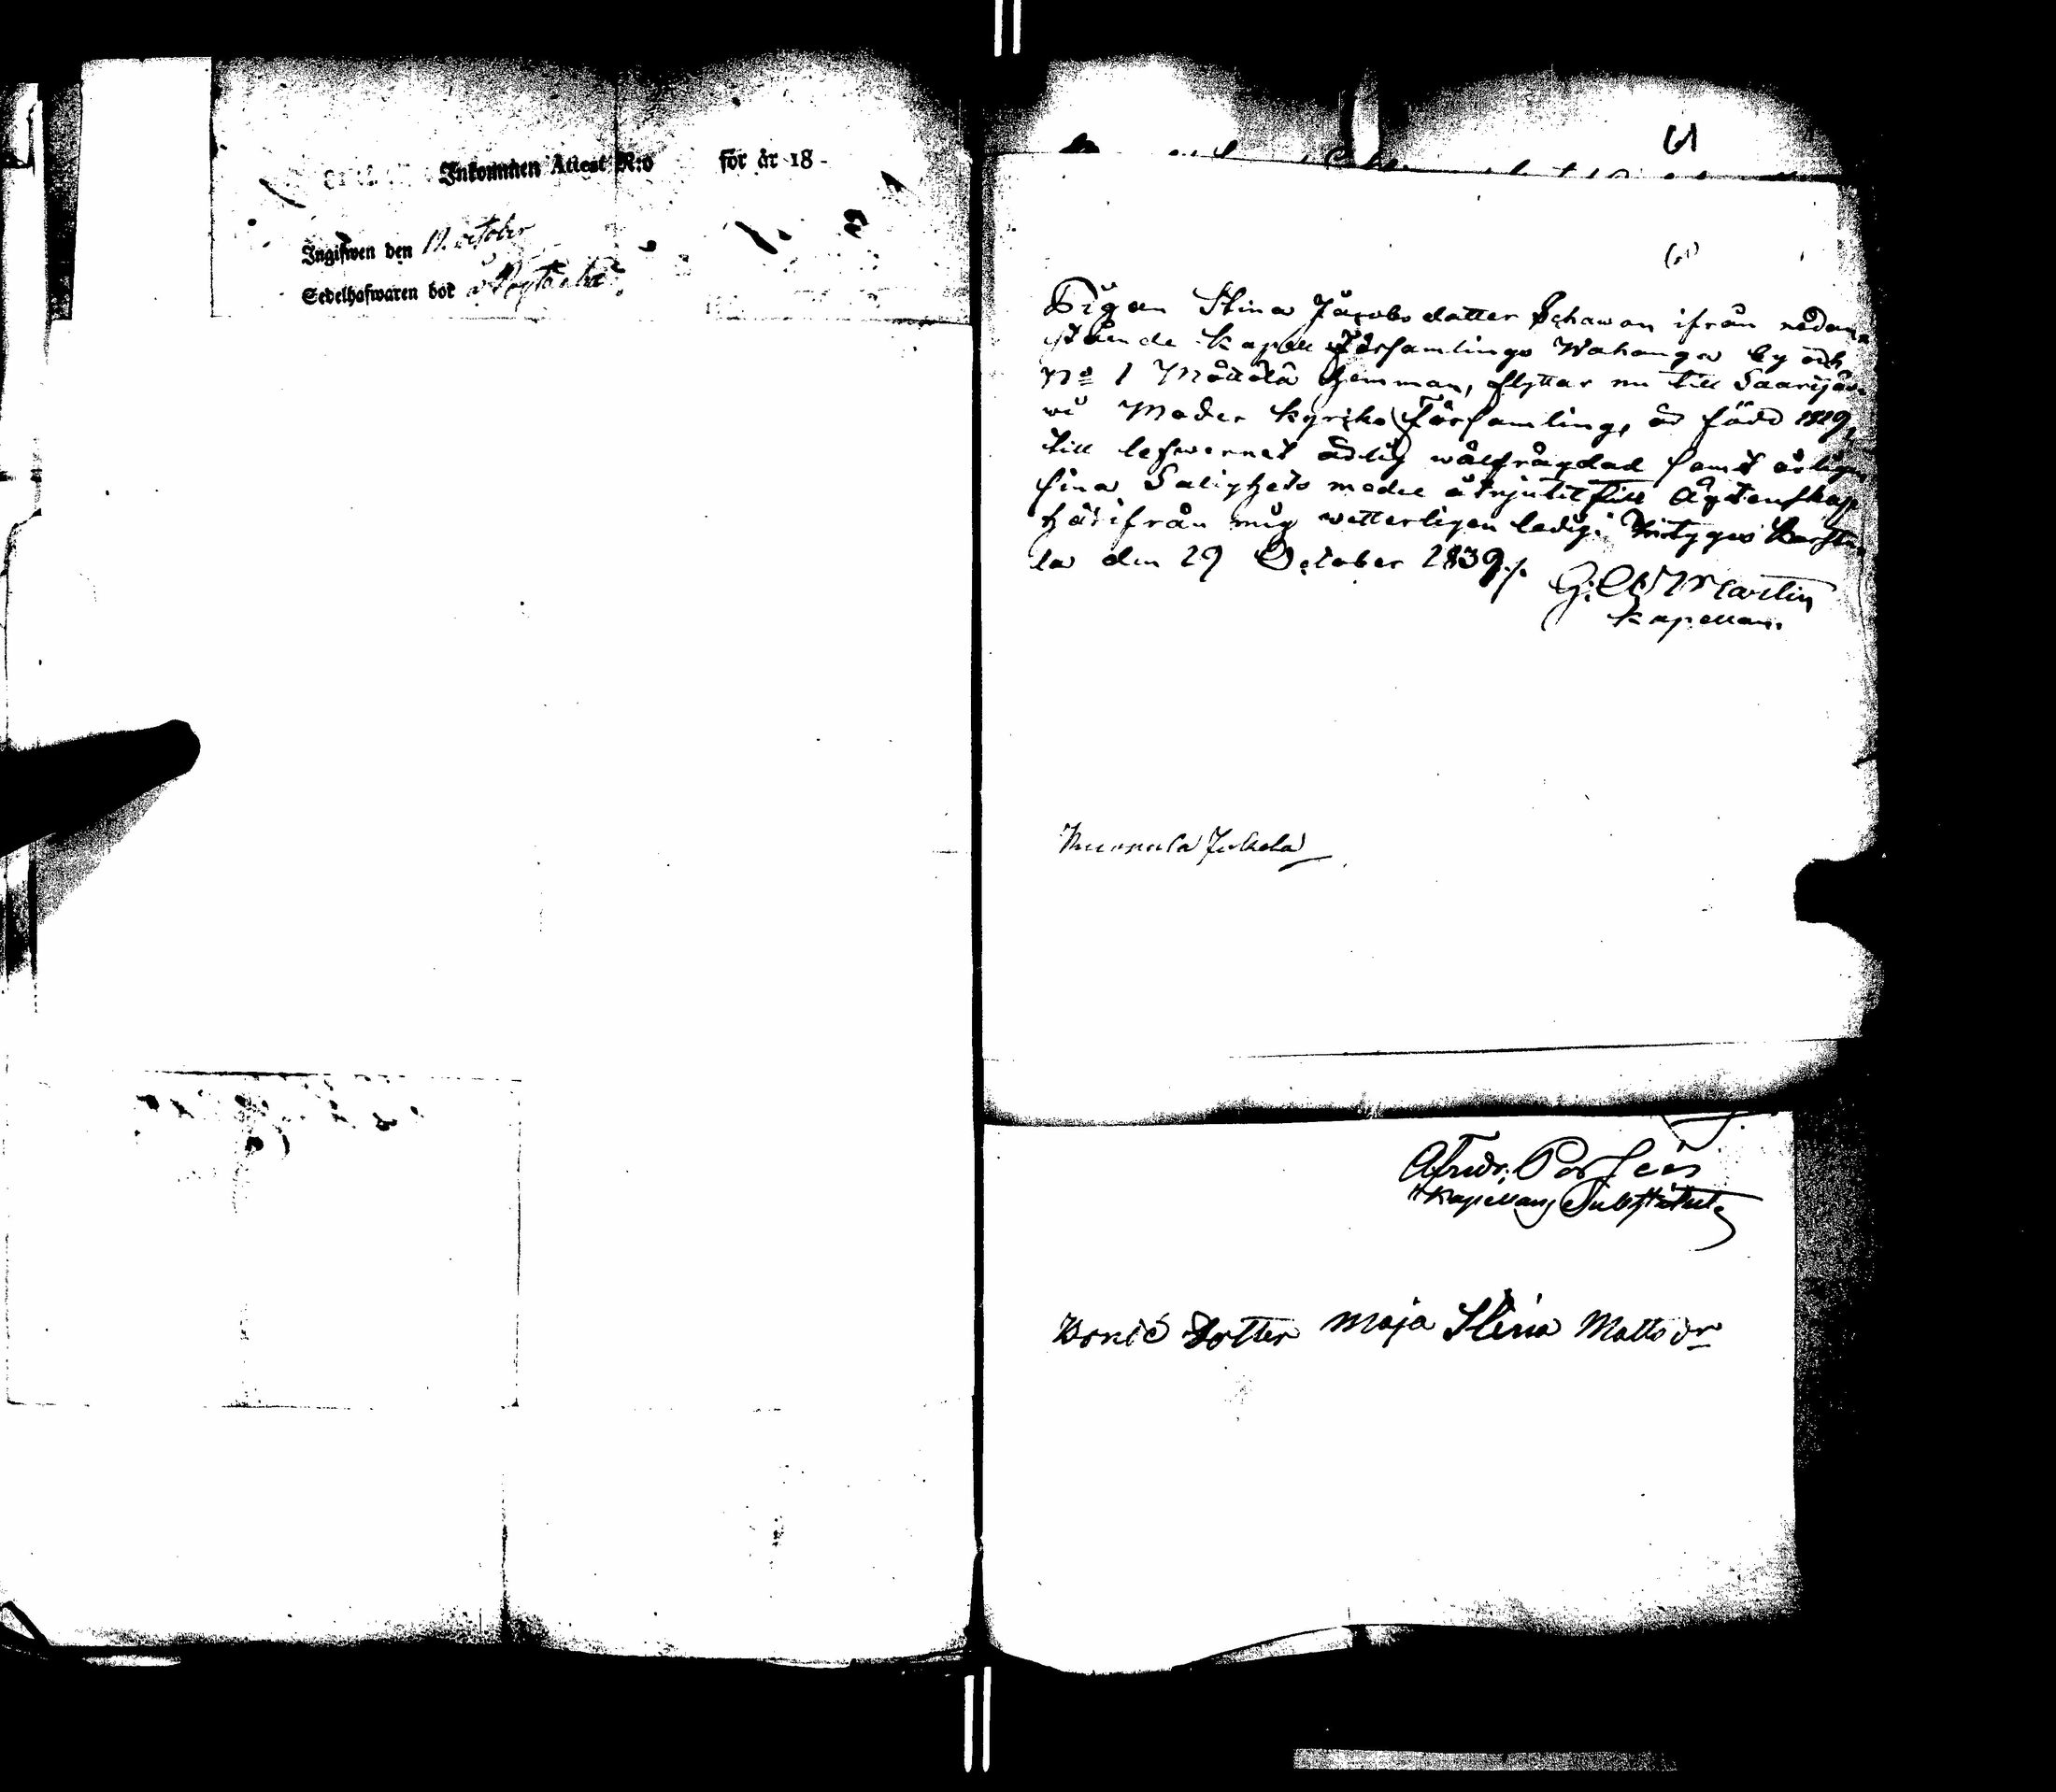 Inkommen Attest N:o för år 18
Ingifwen den 19. october
Sedelhafwaren bor
61
(61)
Pigan Stina Jacobs dotter ifrån nedan-
stående Kapell Församlings Wahanga by och
No 1 Möttölä hemman, flyttar nu till Saarijär-
vi Moder Kyrko Församling, är född 1819,
till lefvernet ärlig wälfrägdad samt årligen
sina Salighets medel åtnjutit till Ägtenskap
härifrån mig wetterligen ledig: Betygas Karstu-
la den 29 October 1839./.
Martin
Kapellan.
Jukola
Afredr. Porleen
Kapellans Substitut
Dotter Maja Stina Matts dr